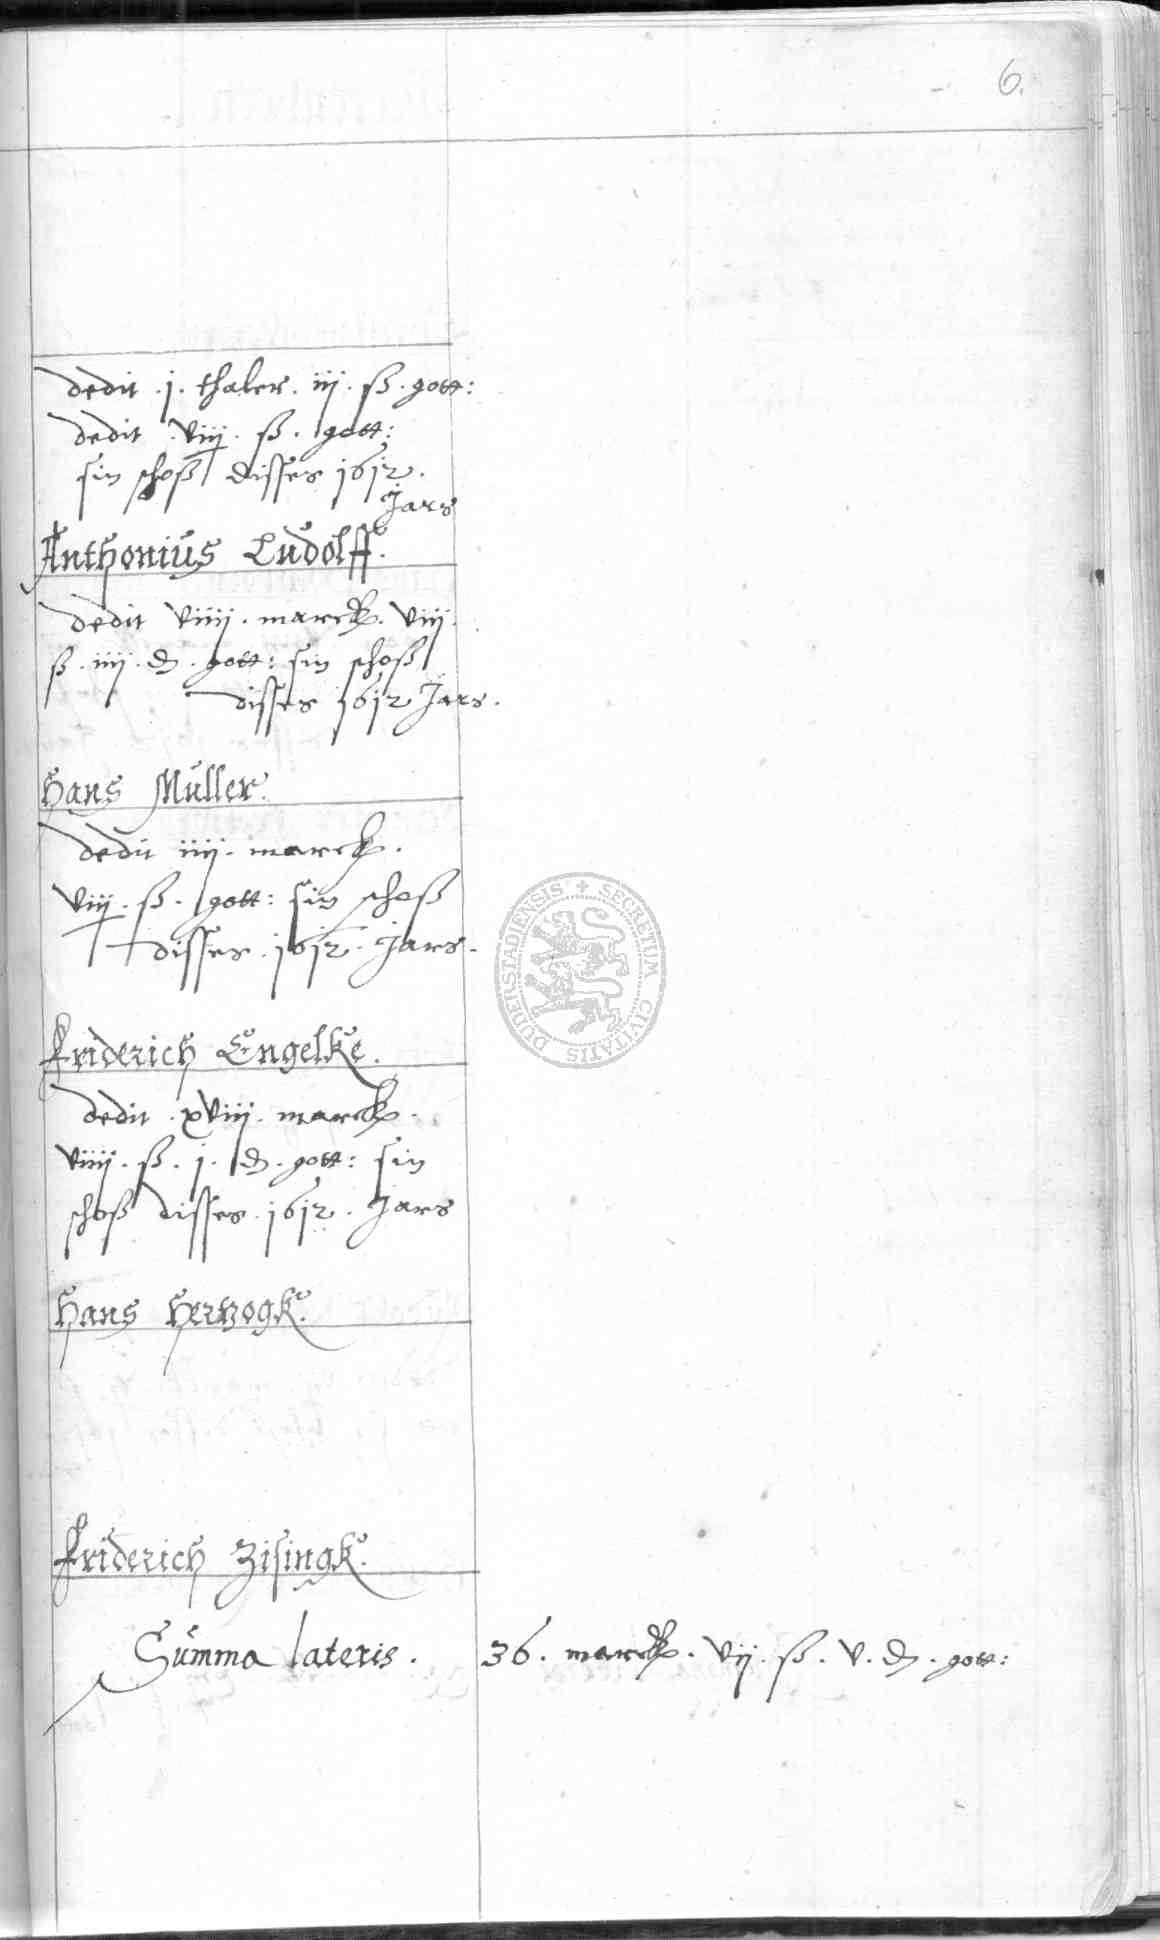 6.
dedit . j . thaler . iij . ß . gott:
dedit . viij . ß . gott:
sin schoß disses 1612 .
Jars
Anthonius Ludolff .
dedit viiij . marck . viij .
ß . iiij . d . gott: sin schoß
disses 1612 Jars .
Hans Müller .
dedit iiij . marck .
viij . ß . gott: sin schoß
disses . 1612 . Jars .
Friderich Engelke .
dedit . xviij . marck .
viiij . ß . j . d . gott: sin
schoß disses . 1612 . Jars
Hans Hertzogk .
Friderich Zisingk .
Summa lateris . 36 . marck . vij . ß . v . d . gott:
DUDERSTADIENSIS + SECRETUM CIVITATIS